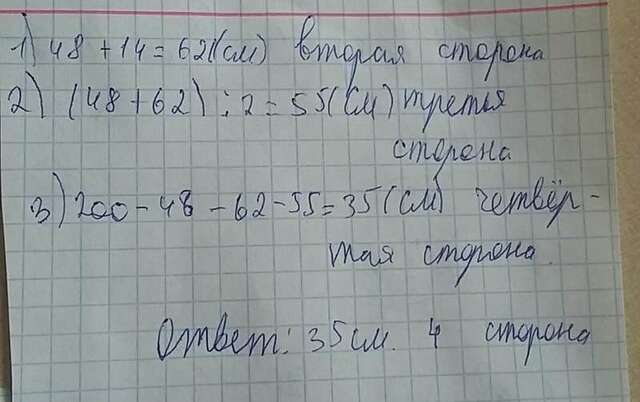 1) 48 + 14 = 62 (см) вторая сторона
2) (48 + 62) : 2 = 55 (см) третья
сторона
3) 200 - 48 - 62 - 55 = 35 (см) четвёр-
тая сторона.
Ответ: 35 см. 4 сторона